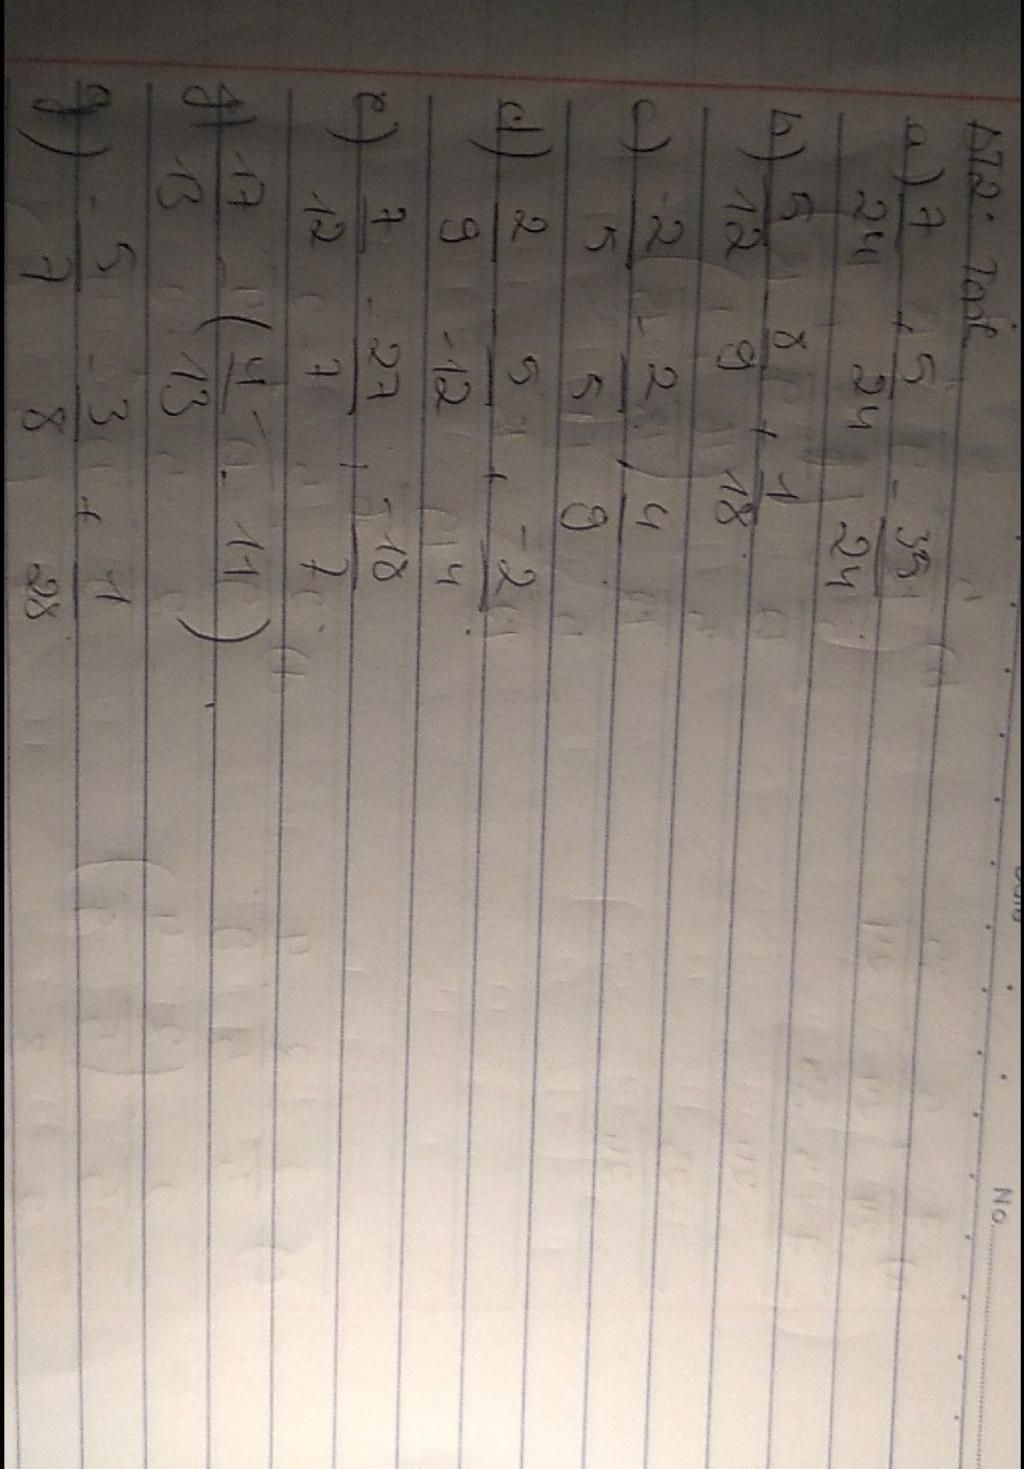 No.
BT2: Tính
a) 7/24 + 5/24 - 35/24
b) 5/12 - 8/9 + 1/18
c) -2/5 - 2/5 + 4/9
d) 2/9 - 5/-12 + -2/4
e) 7/12 - 27/7 + -18/7
f) 17/13 - (4/13 - 11)
g) -5/7 - 3/8 + 1/28